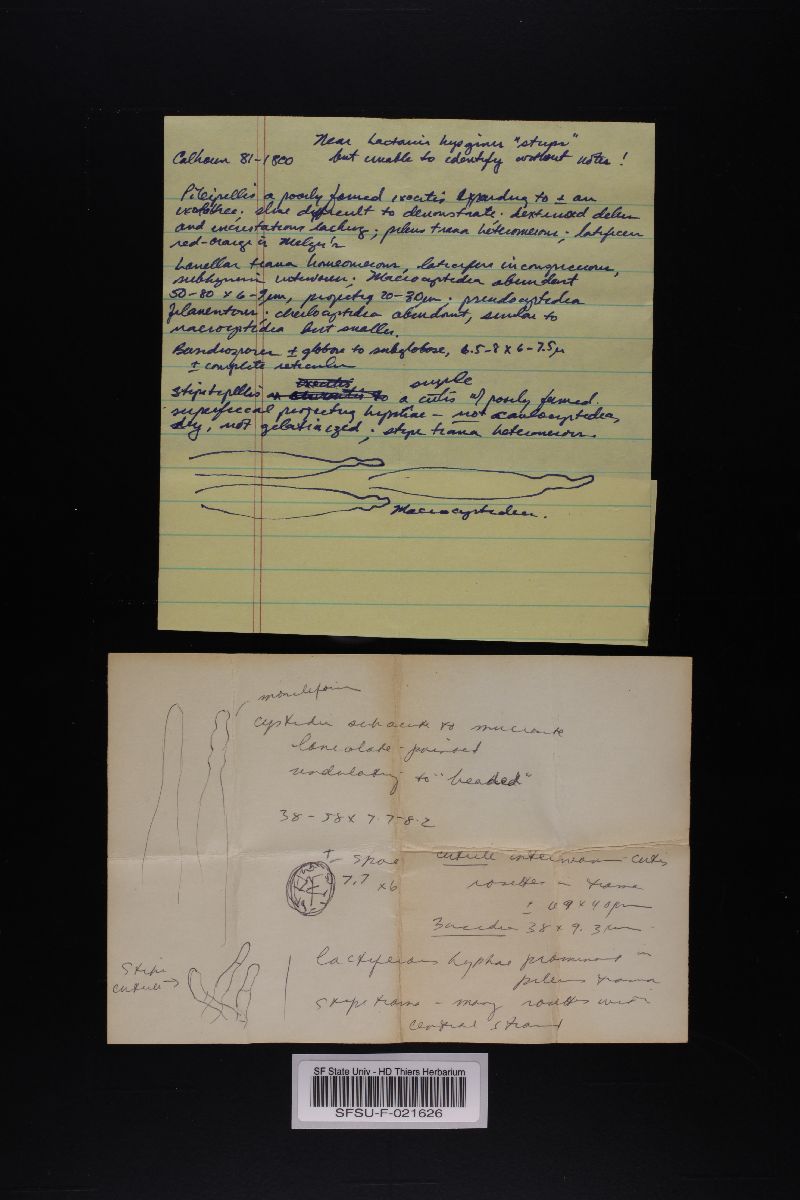 Near Lactarius hysginus "strips"
Calhoun 81-1800 but unable to identify without notes!
Pileipellis a poorly formed ixocutis expanding to ± an
slime difficult to demonstrate.
and incrustations lacking; pileus trama heteromerous; laticifers
red-orange in Melzer's
Lamellar trama homoiomerous, laticifers inconspicuous,
subhymenium interwoven; Macrocystidia abundant
50-80 x 6-9 µm, projecting 20-30 µm; pseudocystidia
filamentous; cheilocystidia abundant, similar to
macrocystidia but smaller.
Basidiospores ± globose to subglobose, 6.5-8 x 6-7.5 µ
± complete reticulum
Stipitipellis simple
a cutis w/ poorly formed
superficial projecting hyphae - not caulocystidia,
dry, not gelatinized; stipe trama heteromerous.
Macrocystidia.
moniliform
cystidia subacute to mucronate
lanceolate-pointed
undulating to "headed"
38-58 x 7.7-8.2
± spore
7.7 x 6
cuticle interwoven cutis
rosettes in trama
± 69 x 40 µm
Basidia 38 x 9.3 µm
lactiferous hyphae prominent in
pileus trama
Stipe
cuticle →
Stipe trama - many rosettes with
central strand
SF State Univ - HD Thiers Herbarium
SFSU-F-021626